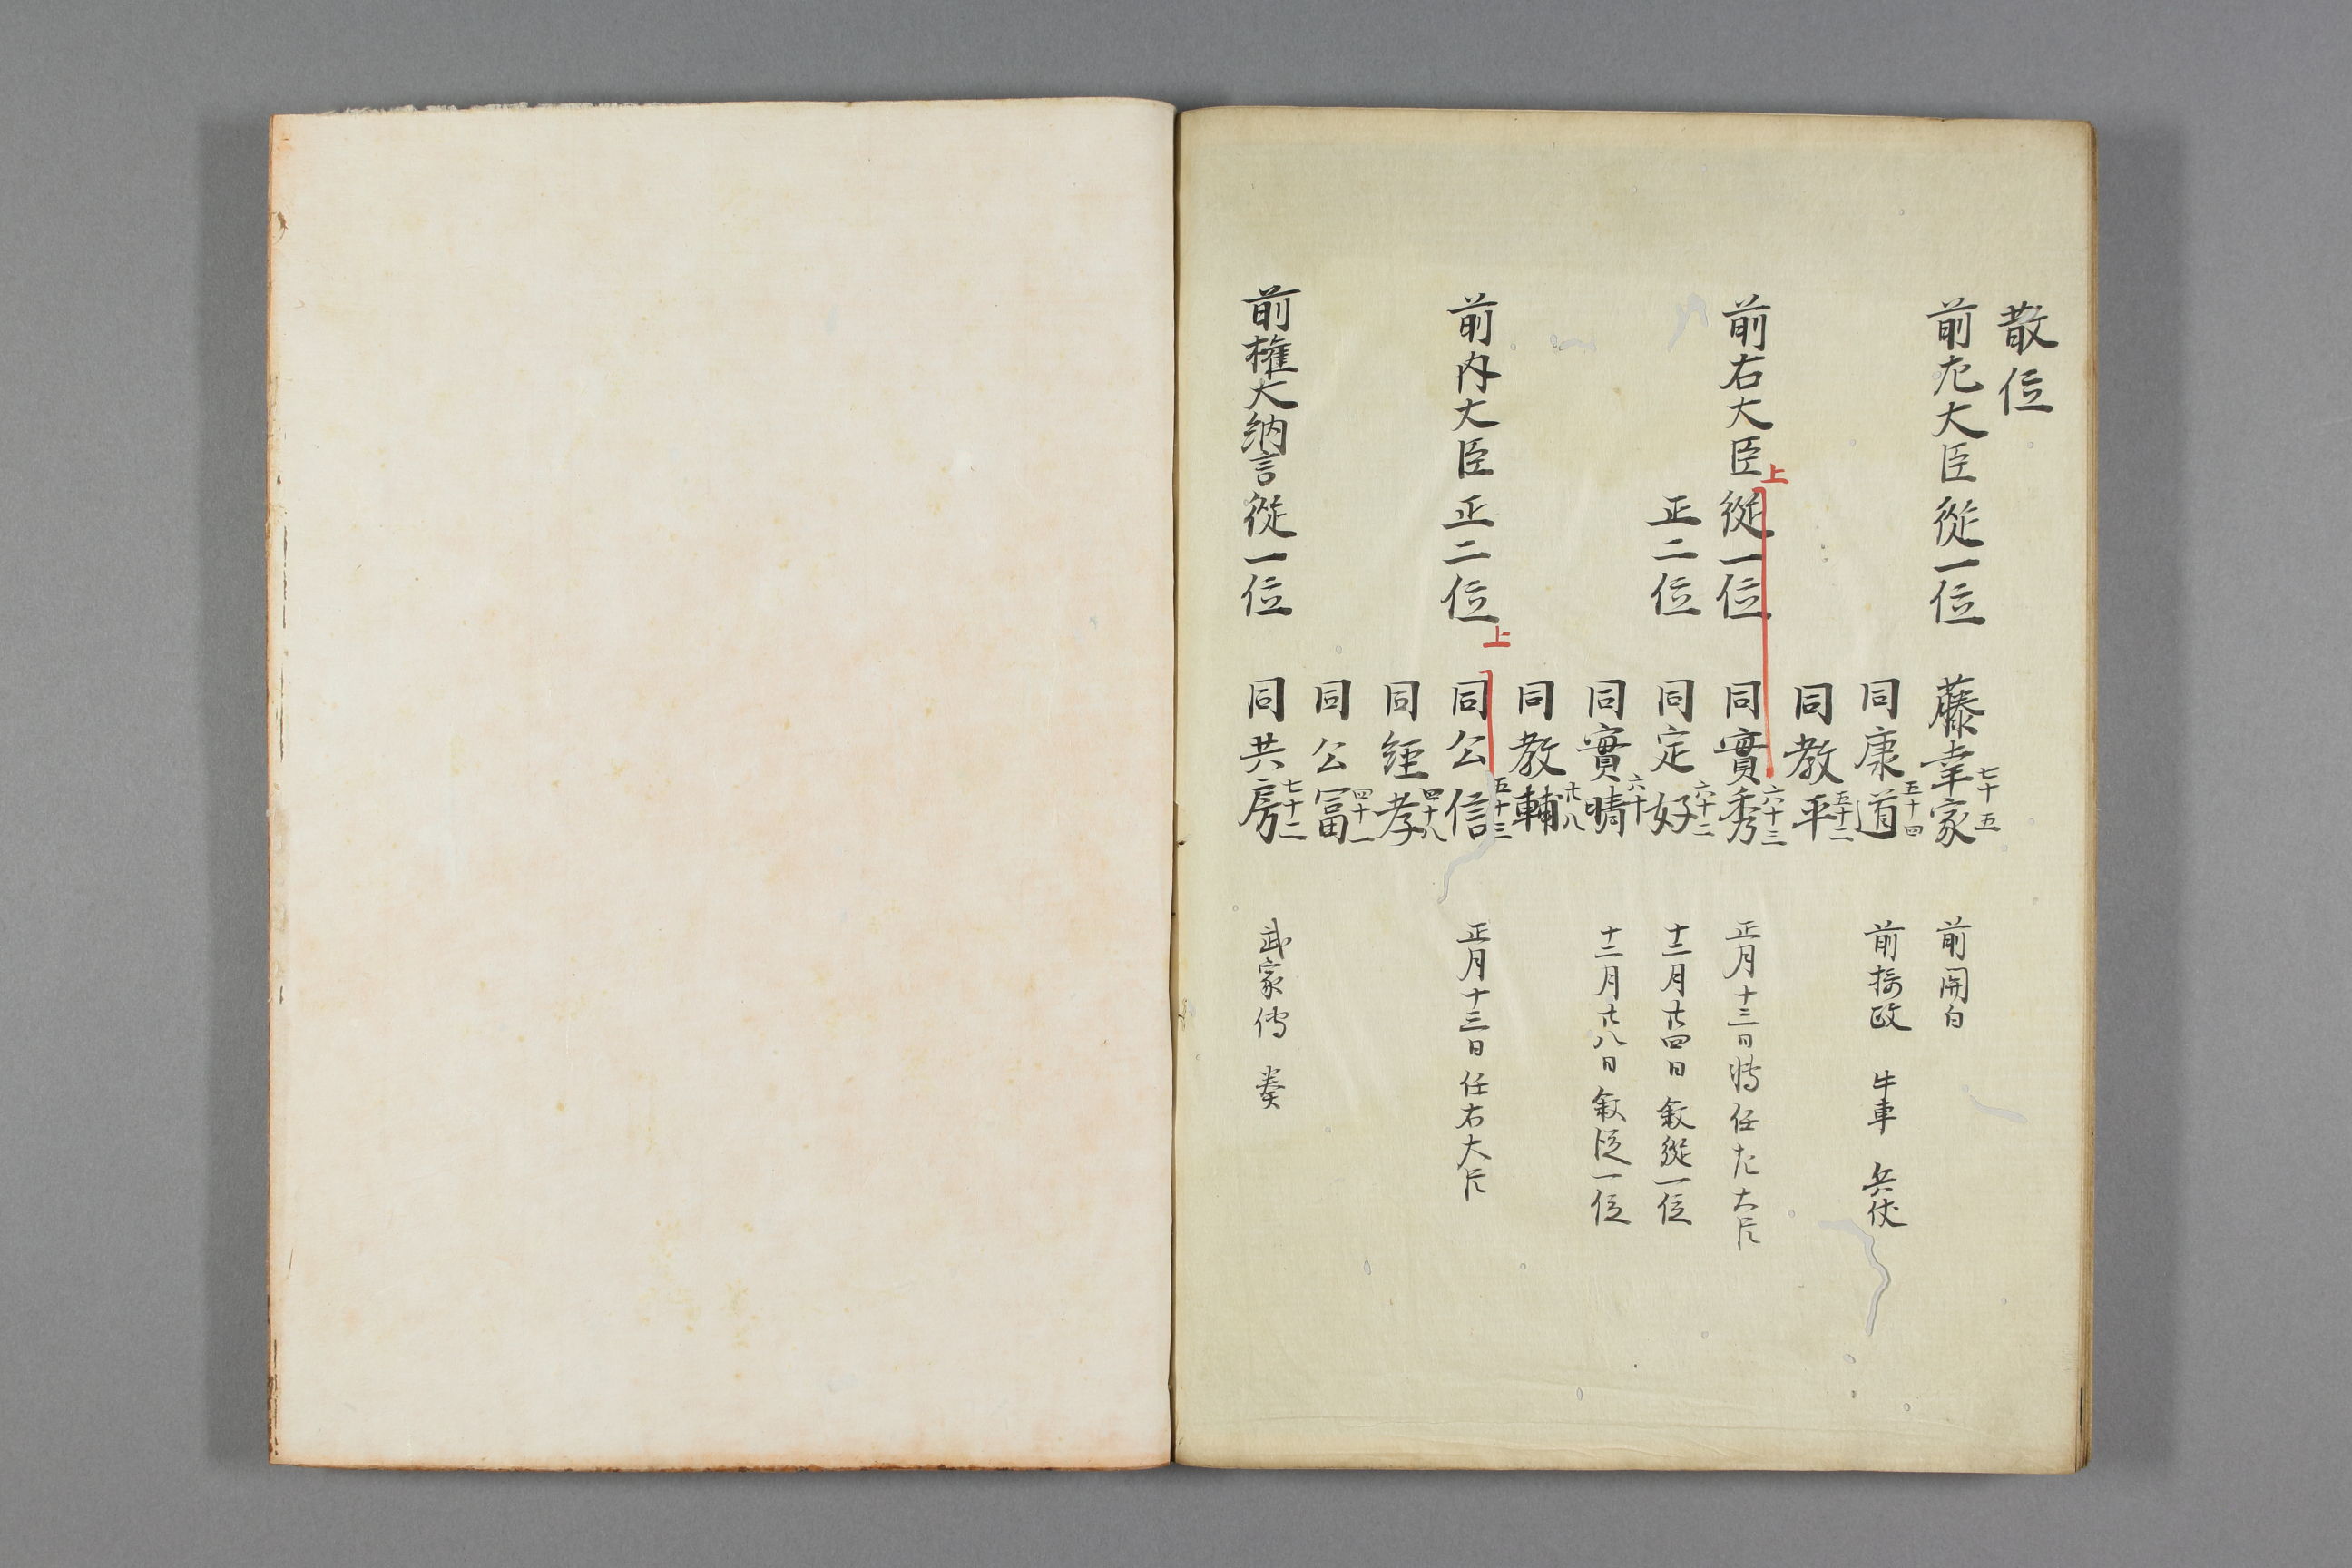 散位
前左大臣従一位 藤幸家 七十五 前関白
同康道 五十四 前摂政 牛車 兵仗
同教平 五十二
上
前右大臣従一位 同實秀 六十三 正月十三日転任左大臣
正二位 同定好 六十二 十二月廿四日叙従一位
同實晴 六十 十二月廿八日叙従一位
同教輔 廿八
前内大臣正二位 上 同公信 五十三 正月十三日任右大臣
同経孝 四十八
同公冨 四十一
前権大納言従一位 同共房 七十二 武家傳奏